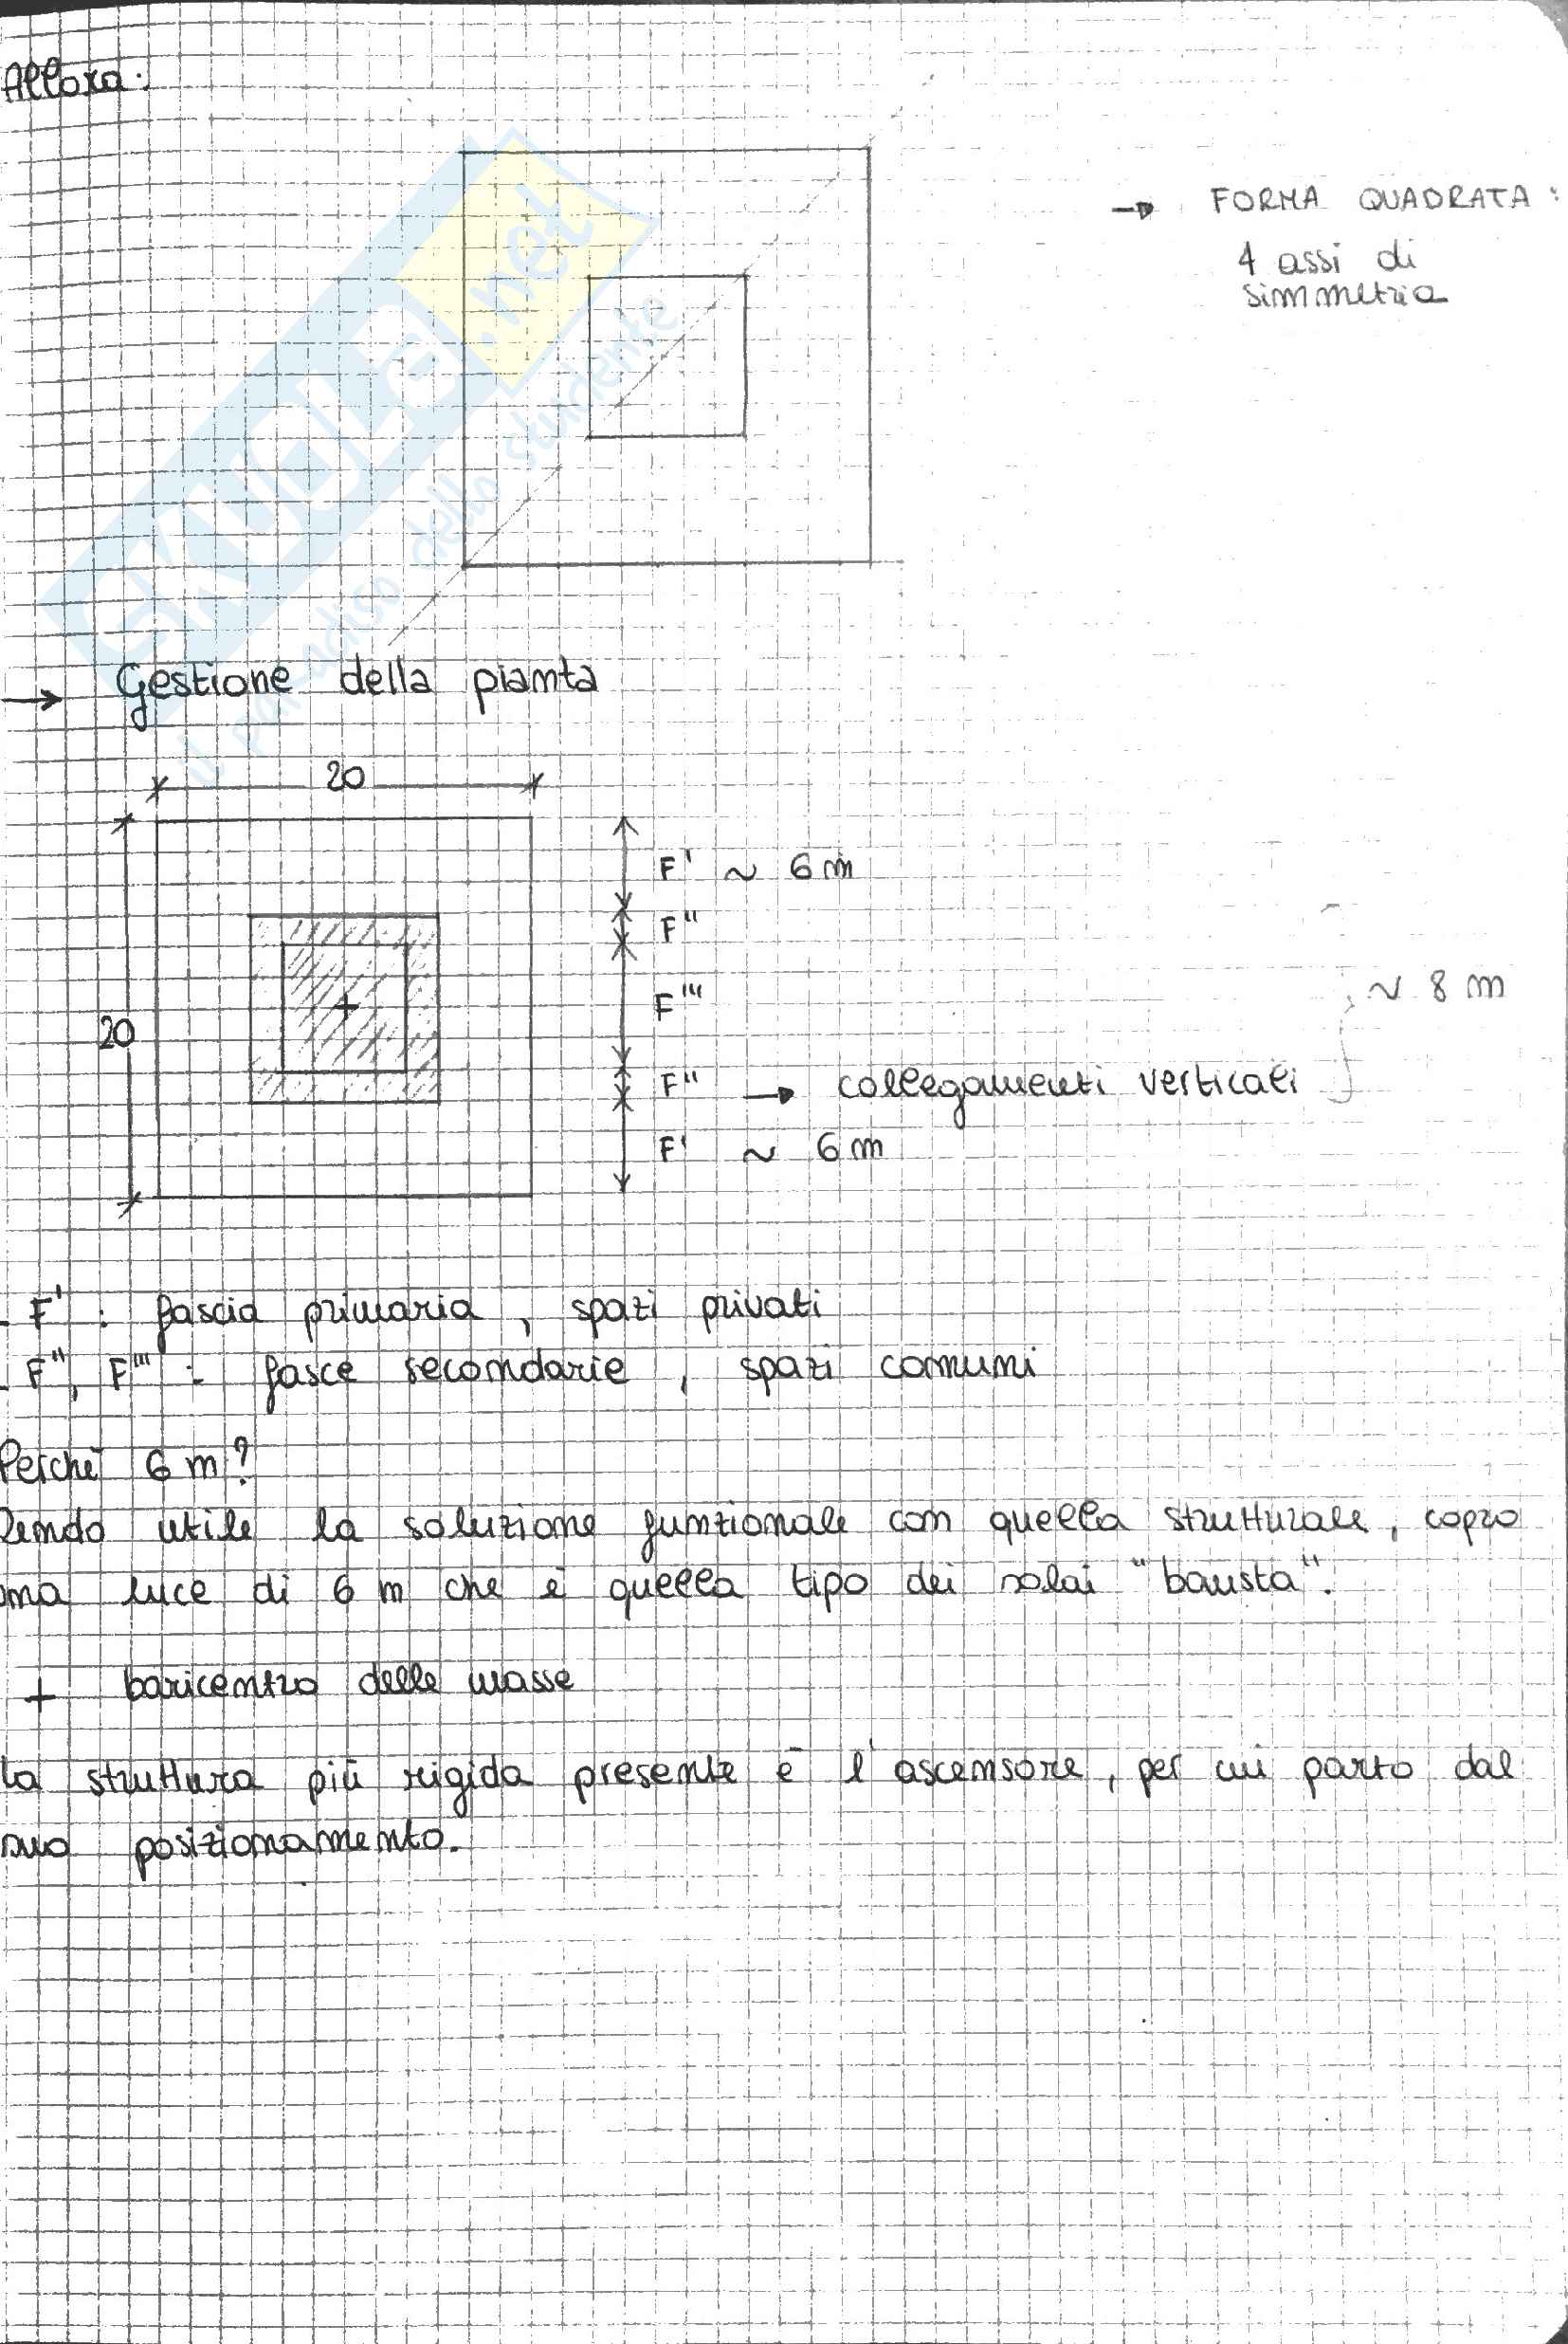 Allora:
→ FORMA QUADRATA:
4 assi di
simmetria
→ Gestione della pianta
20
F' ~ 6 m
F"
F"'
~ 8 m
20
F" → collegamenti verticali
F' ~ 6 m
- F' : fascia primaria, spazi privati
- F", F"' : fasce secondarie, spazi comuni
Perchè 6 m?
Rendo utile la soluzione funzionale con quella strutturale, copro
una luce di 6 m che è quella tipo dei solai "bausta".
+ baricentro delle masse
La struttura più rigida presente è l'ascensore, per cui parto dal
suo posizionamento.
SKUOLA.net
il paradiso dello studente